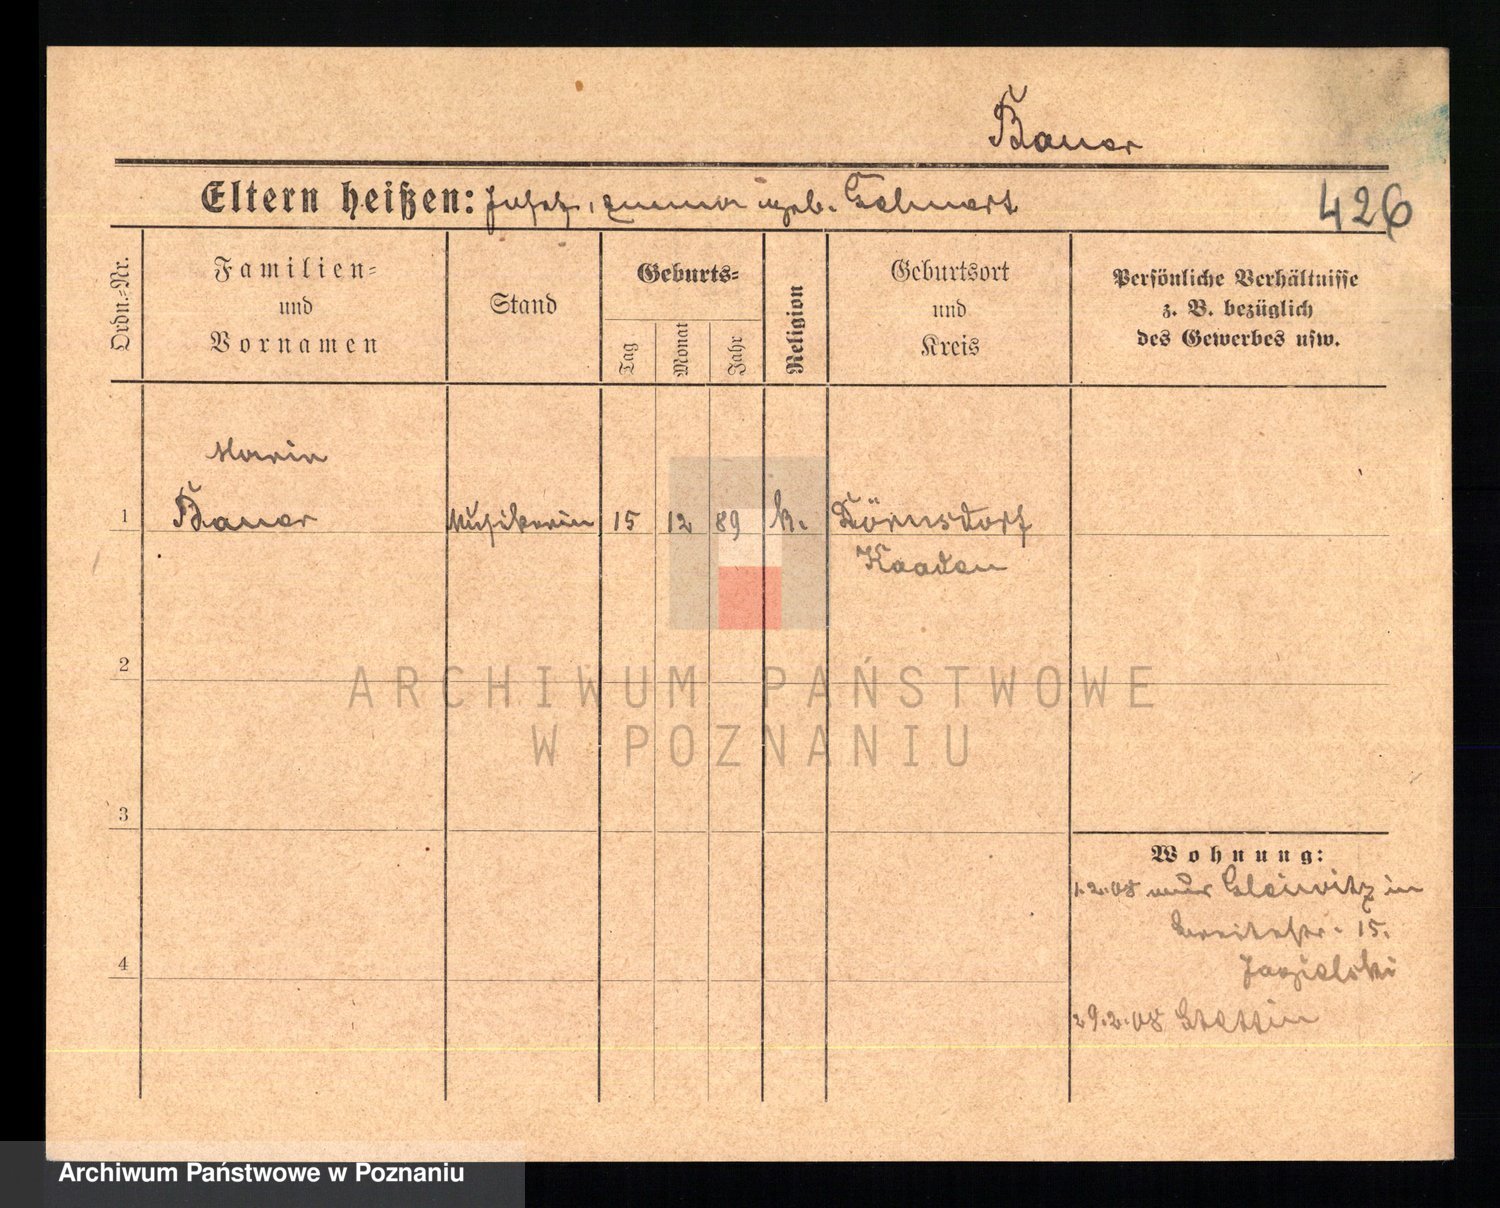 Bauer
Eltern heißen: Josef, Anna geb.
426
Ordn.=Nr.
Familien=
und
Vornamen
Stand
Geburts=
Tag
Monat
Jahr
Religion
Geburtsort
und
Kreis
Persönliche Verhältnisse
z. B. bezüglich
des Gewerbes usw.
Marie
1 Bauer Musikerin 15 12 89 k. Dörnsdorf
Kaaden
2
3
4
Wohnung:
1.2.08 aus Gleiwitz in
Breitestr. 15.
Jagielski
29.2.08 Stettin
ARCHIWUM PAŃSTWOWE
W POZNANIU
Archiwum Państwowe w Poznaniu